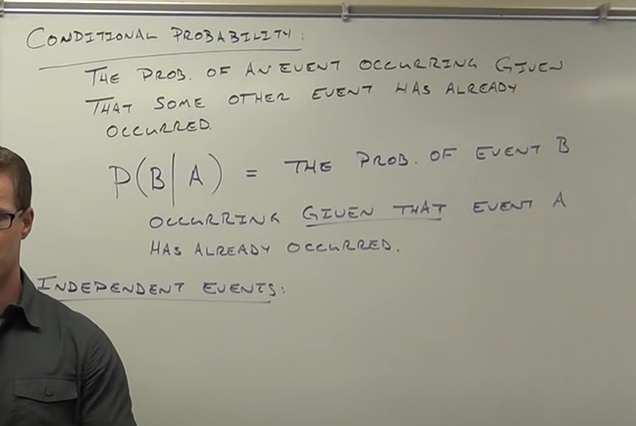 CONDITIONAL PROBABILITY:
THE PROB. OF AN EVENT OCCURRING GIVEN
THAT SOME OTHER EVENT HAS ALREADY
OCCURRED.
P(B|A) = THE PROB. OF EVENT B
OCCURRING GIVEN THAT EVENT A
HAS ALREADY OCCURRED.
INDEPENDENT EVENTS: